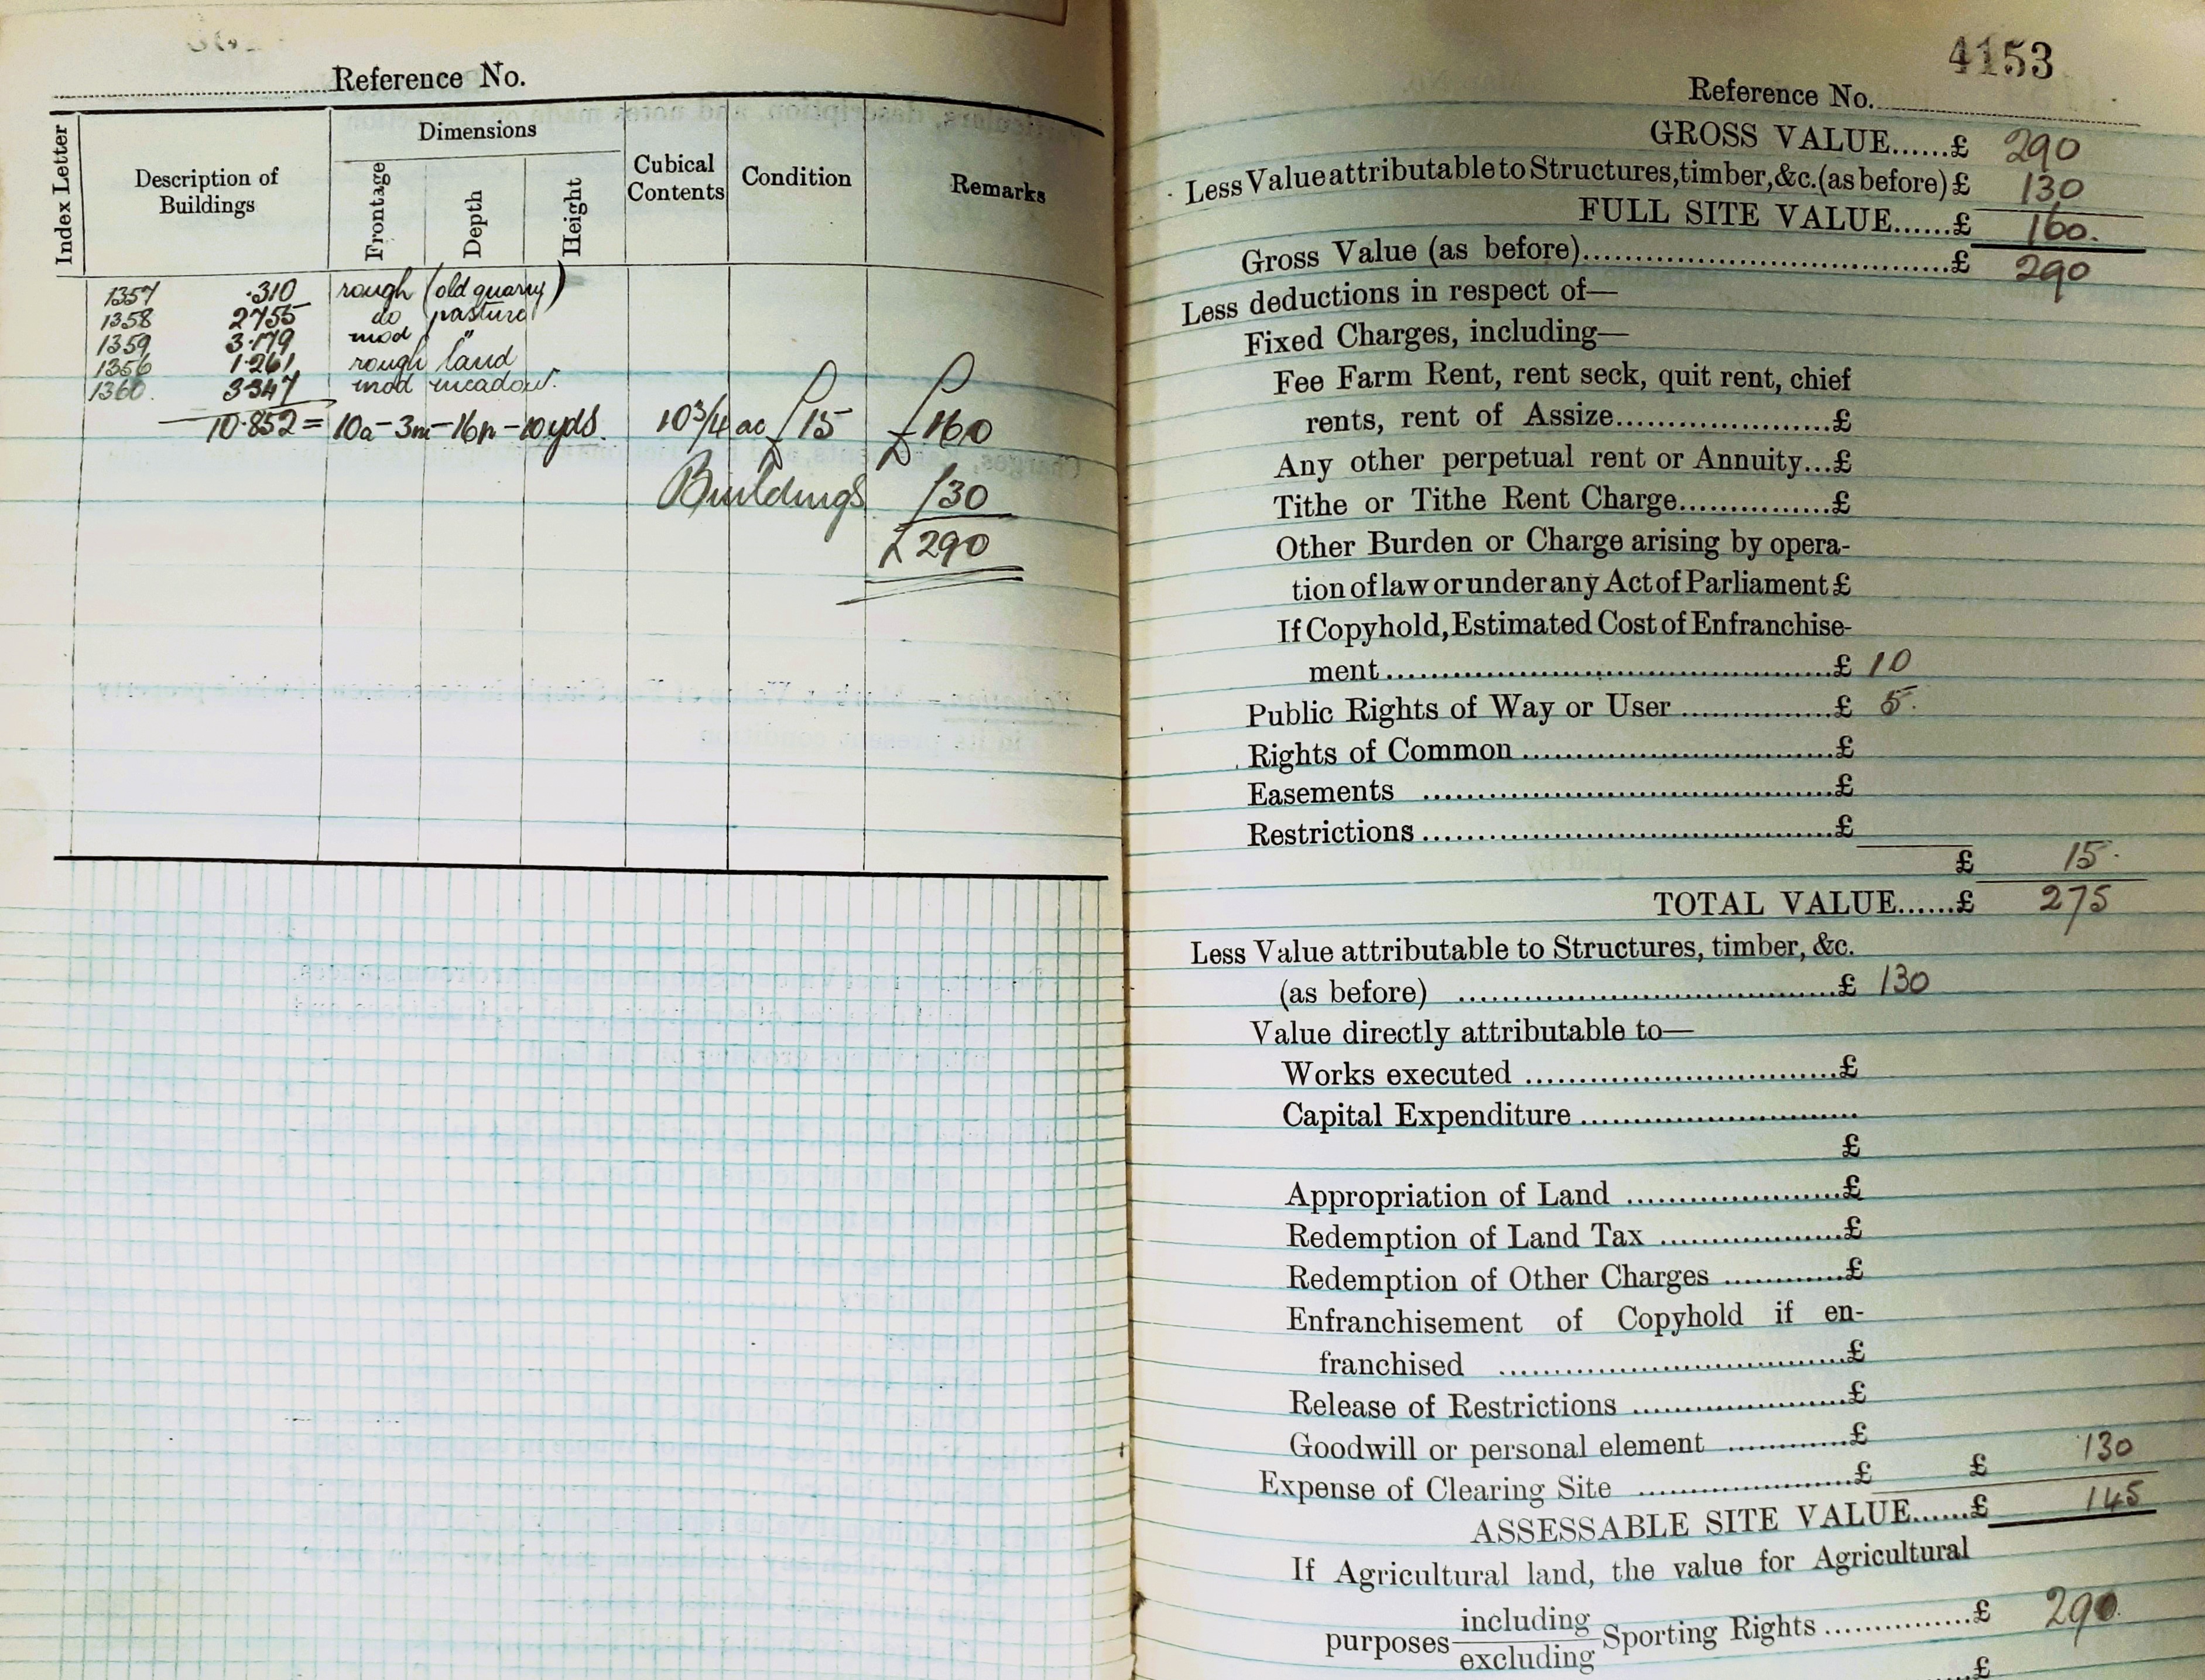 Reference No.
Index Letter
Description of
Buildings
Dimensions
Frontage
Depth
Height
Cubical
Contents
Condition
Remarks
1357 .310 rough (old quarry)
1358 2.755 do pasture
1359 3.179 mod "
1356 1.261 rough land
1360. 3.347 mod meadow.
10.852 = 10a-3r-16p-10yds. 10 3/4 ac £15 £160
Buildings 130
£290
4153
Reference No.
GROSS VALUE......£ 290
Less Value attributable to Structures, timber, &c. (as before) £ 130
FULL SITE VALUE......£ 160.
Gross Value (as before)......£ 290
Less deductions in respect of—
Fixed Charges, including—
Fee Farm Rent, rent seck, quit rent, chief
rents, rent of Assize......£
Any other perpetual rent or Annuity...£
Tithe or Tithe Rent Charge......£
Other Burden or Charge arising by opera-
tion of law or under any Act of Parliament £
If Copyhold, Estimated Cost of Enfranchise-
ment......£ 10
Public Rights of Way or User......£ 5.
Rights of Common......£
Easements ......£
Restrictions......£
£ 15.
TOTAL VALUE......£ 275
Less Value attributable to Structures, timber, &c.
(as before) ......£ 130
Value directly attributable to—
Works executed ......£
Capital Expenditure......
£
Appropriation of Land ......£
Redemption of Land Tax ......£
Redemption of Other Charges ......£
Enfranchisement of Copyhold if en-
franchised ......£
Release of Restrictions ......£
Goodwill or personal element ......£
Expense of Clearing Site ......£ £ 130
ASSESSABLE SITE VALUE......£ 145
If Agricultural land, the value for Agricultural
purposes including
excluding Sporting Rights ......£ 290.
£